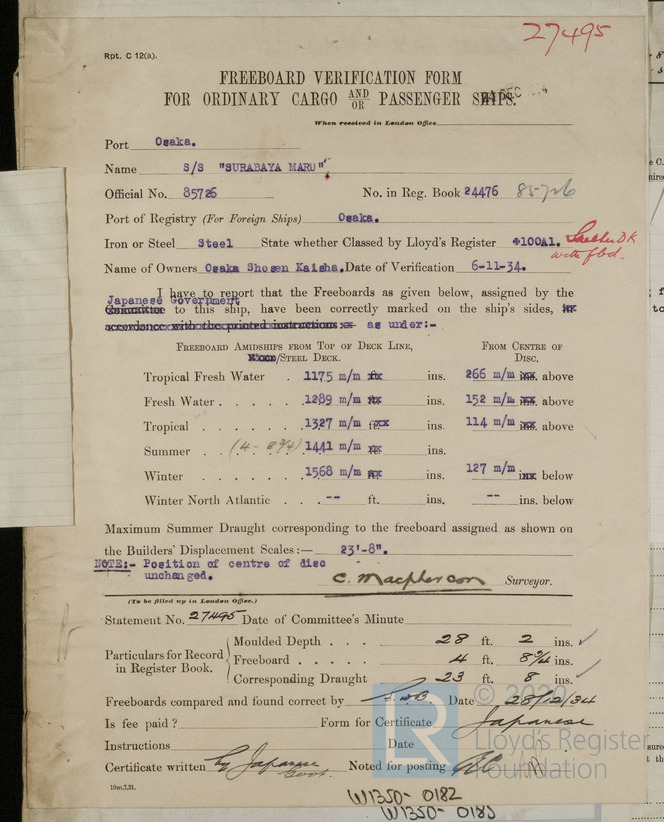 27495
Rpt. C 12(a).
FREEBOARD VERIFICATION FORM
FOR ORDINARY CARGO AND/OR PASSENGER SHIPS.
When received in London Office
Port Osaka.
Name S/S "SURABAYA MARU",
Official No. 85726 No. in Reg. Book 24476 85726
Port of Registry (For Foreign Ships) Osaka.
Iron or Steel Steel State whether Classed by Lloyd's Register ✠100A1. Shelter DK
with fbd.
Name of Owners Osaka Shosen Kaisha. Date of Verification 6-11-34.
I have to report that the Freeboards as given below, assigned by the
Japanese Government
Committee to this ship, have been correctly marked on the ship's sides, in
accordance with the printed instructions as under:-
FREEBOARD AMIDSHIPS FROM TOP OF DECK LINE, FROM CENTRE OF
WOOD/STEEL DECK. DISC.
Tropical Fresh Water . 1175 m/m ft. ins. 266 m/m ins. above
Fresh Water . . . . . 1289 m/m ft. ins. 152 m/m ins. above
Tropical . . . . . . 1327 m/m ft. ins. 114 m/m ins. above
Summer . . (4 - 8 3/4) 1441 m/m ft. ins.
Winter . . . . . . 1568 m/m ft. ins. 127 m/m ins. below
Winter North Atlantic . . . -- ft. ins. -- ins. below
Maximum Summer Draught corresponding to the freeboard assigned as shown on
the Builders' Displacement Scales:— 23'-8".
NOTE:- Position of centre of disc
unchanged.
C. Macpherson Surveyor.
(To be filled up in London Office.)
Statement No. 27495 Date of Committee's Minute
Particulars for Record in Register Book.
Moulded Depth . . . 28 ft. 2 ins. ✓
Freeboard . . . . . 4 ft. 8 3/4 ins.
Corresponding Draught 23 ft. 8 ins. ✓
Freeboards compared and found correct by Date 28/12/34
Is fee paid? Form for Certificate Japanese
Instructions Date
Certificate written by Japanese Govt. Noted for posting
10m,7,31.
© 2020
Lloyd's Register
Foundation
W1350-0182
W1350-0183